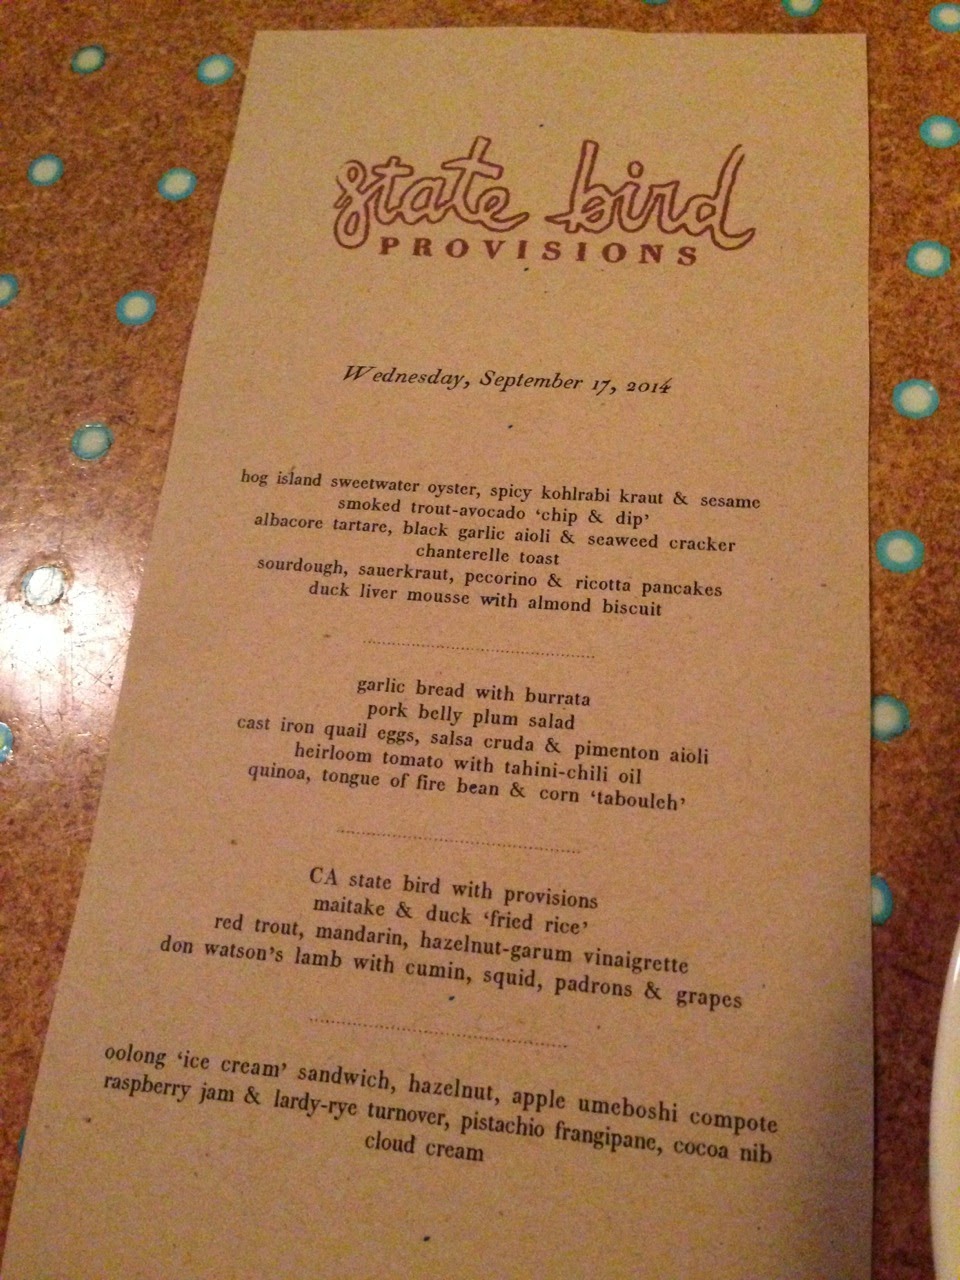 state bird
PROVISIONS
Wednesday, September 17, 2014
hog island sweetwater oyster, spicy kohlrabi kraut & sesame
smoked trout-avocado ‘chip & dip’
albacore tartare, black garlic aioli & seaweed cracker
chanterelle toast
sourdough, sauerkraut, pecorino & ricotta pancakes
duck liver mousse with almond biscuit
garlic bread with burrata
pork belly plum salad
cast iron quail eggs, salsa cruda & pimenton aioli
heirloom tomato with tahini-chili oil
quinoa, tongue of fire bean & corn ‘tabouleh’
CA state bird with provisions
maitake & duck ‘fried rice’
red trout, mandarin, hazelnut-garum vinaigrette
don watson’s lamb with cumin, squid, padrons & grapes
oolong ‘ice cream’ sandwich, hazelnut, apple umeboshi compote
raspberry jam & lardy-rye turnover, pistachio frangipane, cocoa nib
cloud cream